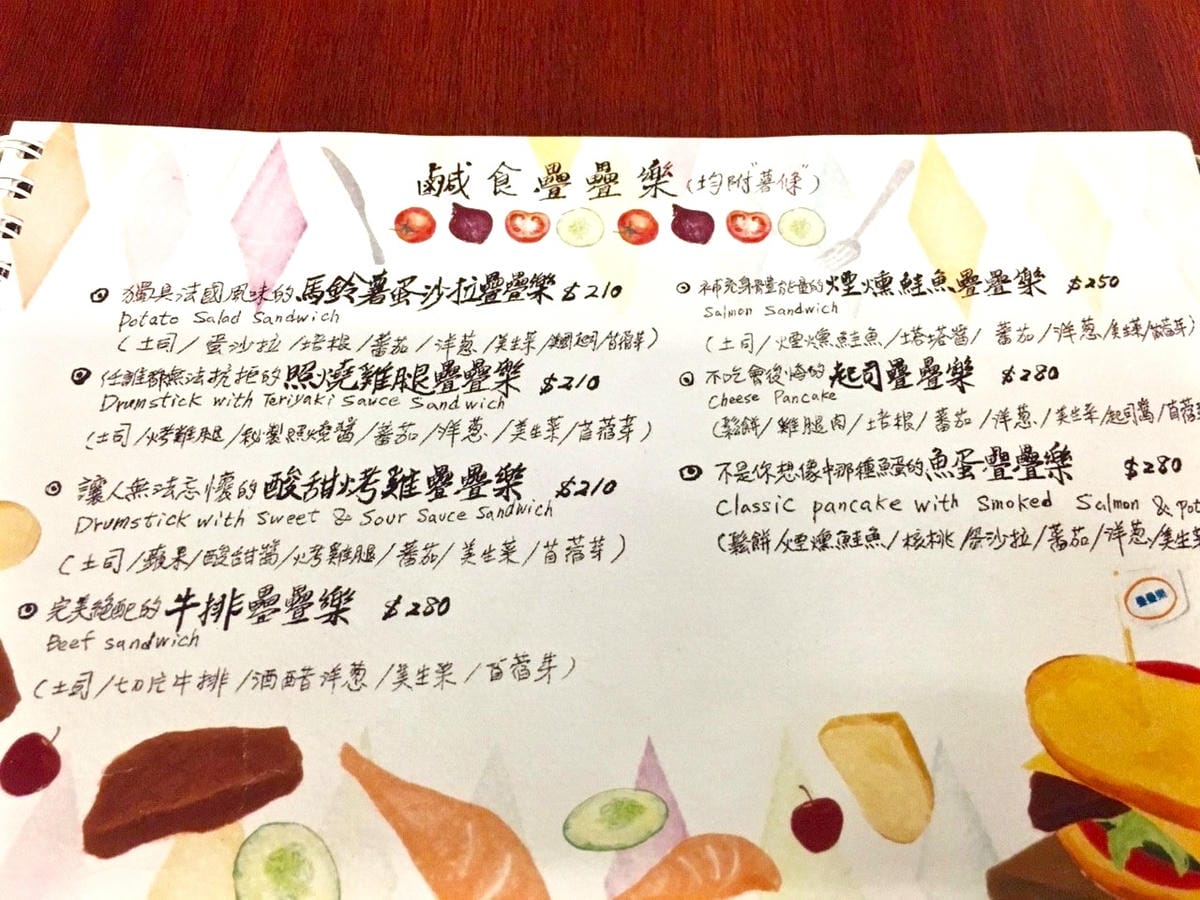 鹹食疊疊樂(均附"薯條")
獨具法國風味的馬鈴薯蛋沙拉疊疊樂 $210
Potato Salad Sandwich
(土司/蛋沙拉/培根/蕃茄/洋蔥/美生菜/苜蓿芽)
任誰都無法抗拒的照燒雞腿疊疊樂 $210
Drumstick with Teriyaki Sauce Sandwich
(土司/烤雞腿/秘製照燒醬/蕃茄/洋蔥/美生菜/苜蓿芽)
讓人無法忘懷的酸甜烤雞疊疊樂 $210
Drumstick with Sweet & Sour Sauce Sandwich
(土司/蘋果/酸甜醬/烤雞腿/蕃茄/美生菜/苜蓿芽)
完美絕配的牛排疊疊樂 $280
Beef sandwich
(土司/切片牛排/酒醋洋蔥/美生菜/苜蓿芽)
補充身體能量的煙燻鮭魚疊疊樂 $250
Salmon Sandwich
(土司/煙燻鮭魚/塔塔醬/蕃茄/洋蔥/美生菜/苜蓿芽)
不吃會後悔的起司疊疊樂 $280
Cheese Pancake
(鬆餅/雞腿肉/培根/蕃茄/洋蔥/美生菜/起司醬/苜蓿
不是你想像中那種魚蛋的魚蛋疊疊樂 $280
Classic pancake with Smoked Salmon & Pot
(鬆餅/煙燻鮭魚/核桃/蛋沙拉/蕃茄/洋蔥/美生菜
疊疊樂